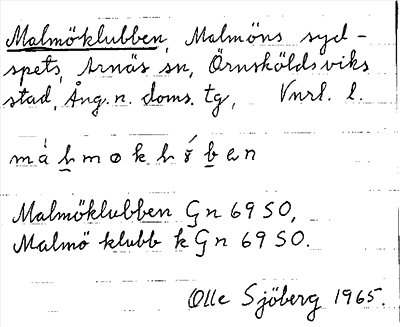 Malmöklubben, Malmöns syd-
spets, Arnäs sn, Örnsköldsviks
stad, Ång. n. doms. tg, Vnrl. l.
Malmöklubben Gn 69 SO,
Malmö klubb k Gn 69 SO.
Olle Sjöberg 1965.